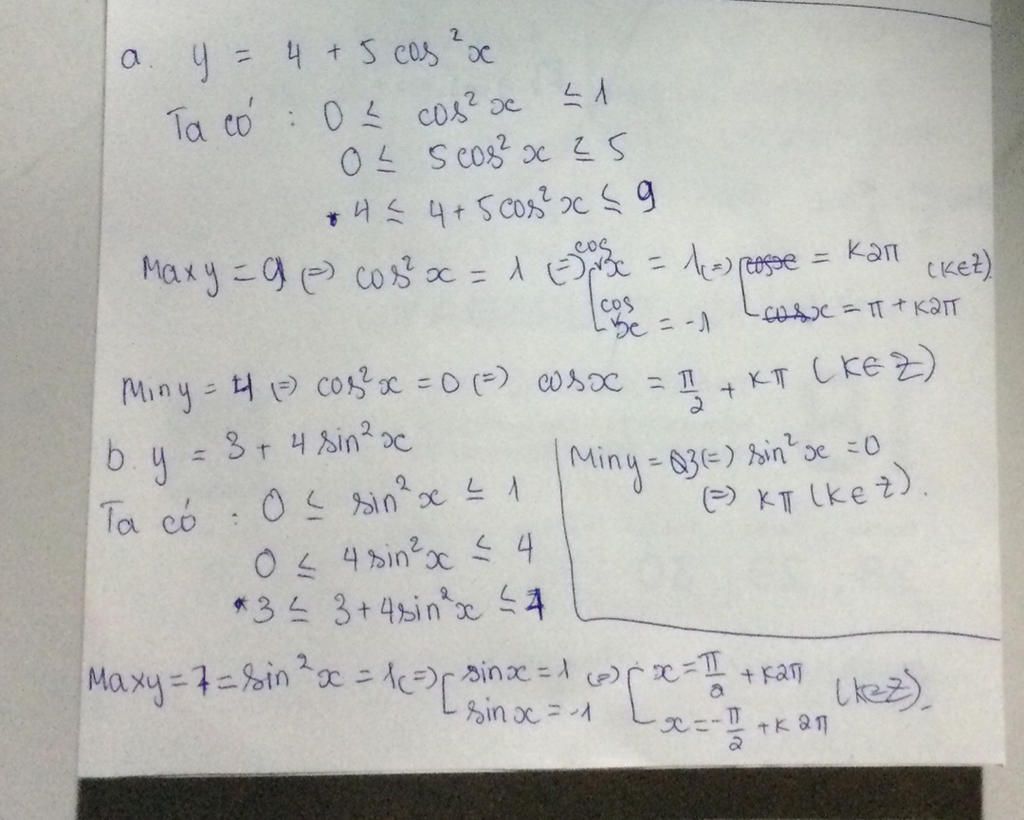 a. y = 4 + 5 cos²x
Ta có : 0 ≤ cos²x ≤ 1
0 ≤ 5cos²x ≤ 5
* 4 ≤ 4 + 5cos²x ≤ 9
Max y = 9 (=) cos²x = 1 (=) [ cos x = 1 (=) [ cosx = k2π (k∈Z)
cos x = -1 cosx = π + k2π
Min y = 4 (=) cos²x = 0 (=) cosx = π/2 + kπ (k∈Z)
b. y = 3 + 4 sin²x
Ta có : 0 ≤ sin²x ≤ 1
0 ≤ 4 sin²x ≤ 4
* 3 ≤ 3 + 4sin²x ≤ 7
Min y = 3 (=) sin²x = 0
(=) kπ (k∈Z).
Max y = 7 = sin²x = 1 (=) [ sinx = 1 (=) [ x = π/2 + k2π (k∈Z).
sinx = -1 x = -π/2 + k2π